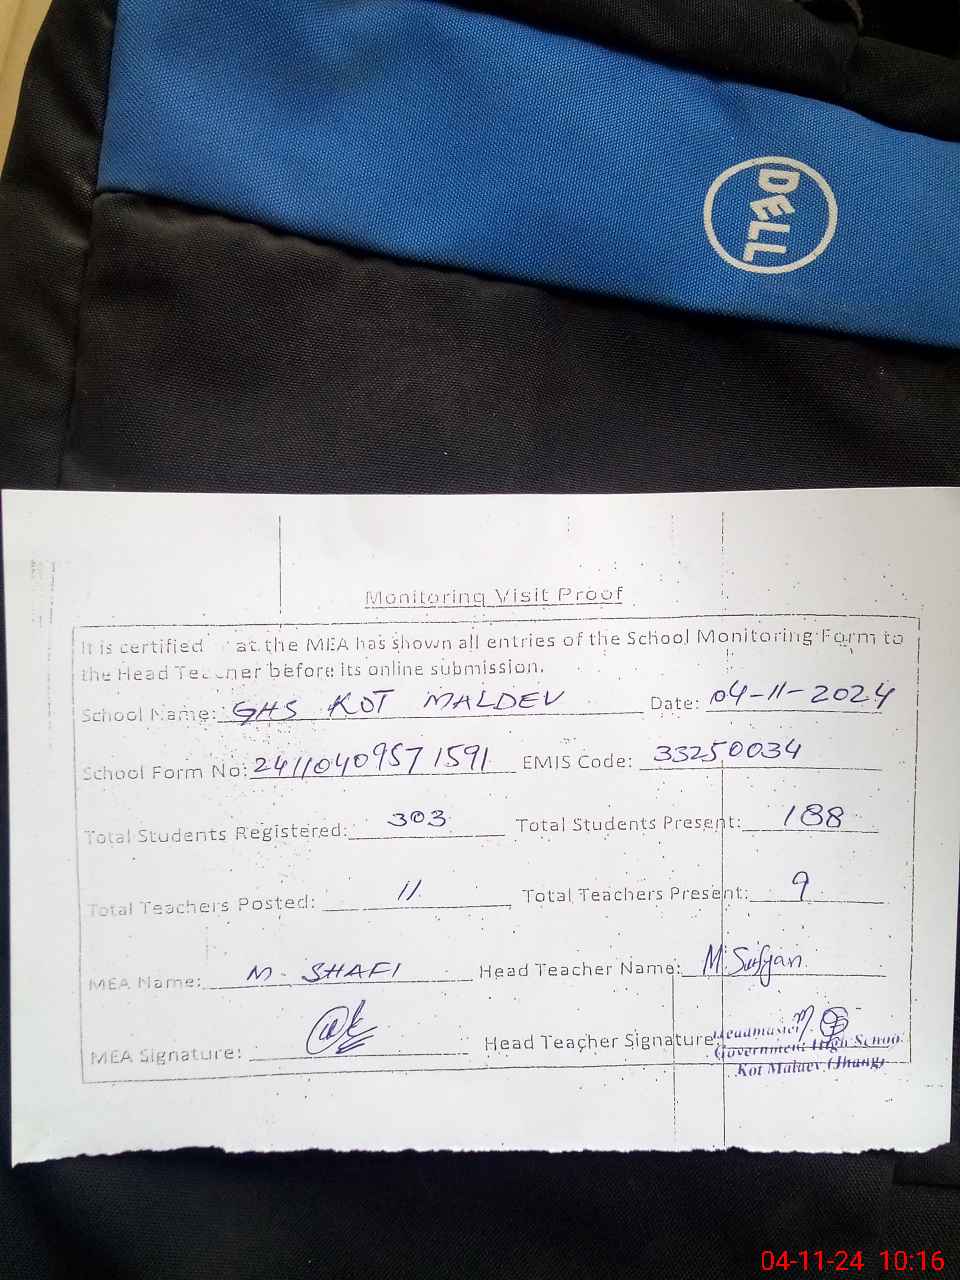 DELL
Monitoring Visit Proof
It is certified at the MEA has shown all entries of the School Monitoring Form to
the Head Teacher before its online submission.
School Name: GHS KOT MALDEV Date: 04-11-2024
School Form No: 24110409571591 EMIS Code: 33250034
Total Students Registered: 303 Total Students Present: 188
Total Teachers Posted: 11 Total Teachers Present: 9
MEA Name: M. SHAFI Head Teacher Name: M. Sufyan
MEA Signature: Head Teacher Signature:
Headmaster
Government High School
Kot Maldev (Jhang)
04-11-24 10:16